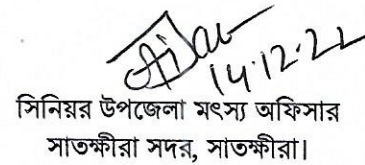 14.12.22
সিনিয়র উপজেলা মৎস্য অফিসার
সাতক্ষীরা সদর, সাতক্ষীরা।